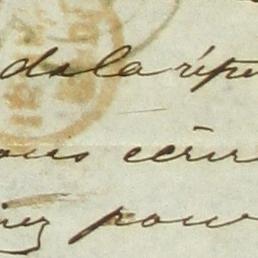 de la répu
ous écrir
iez pour